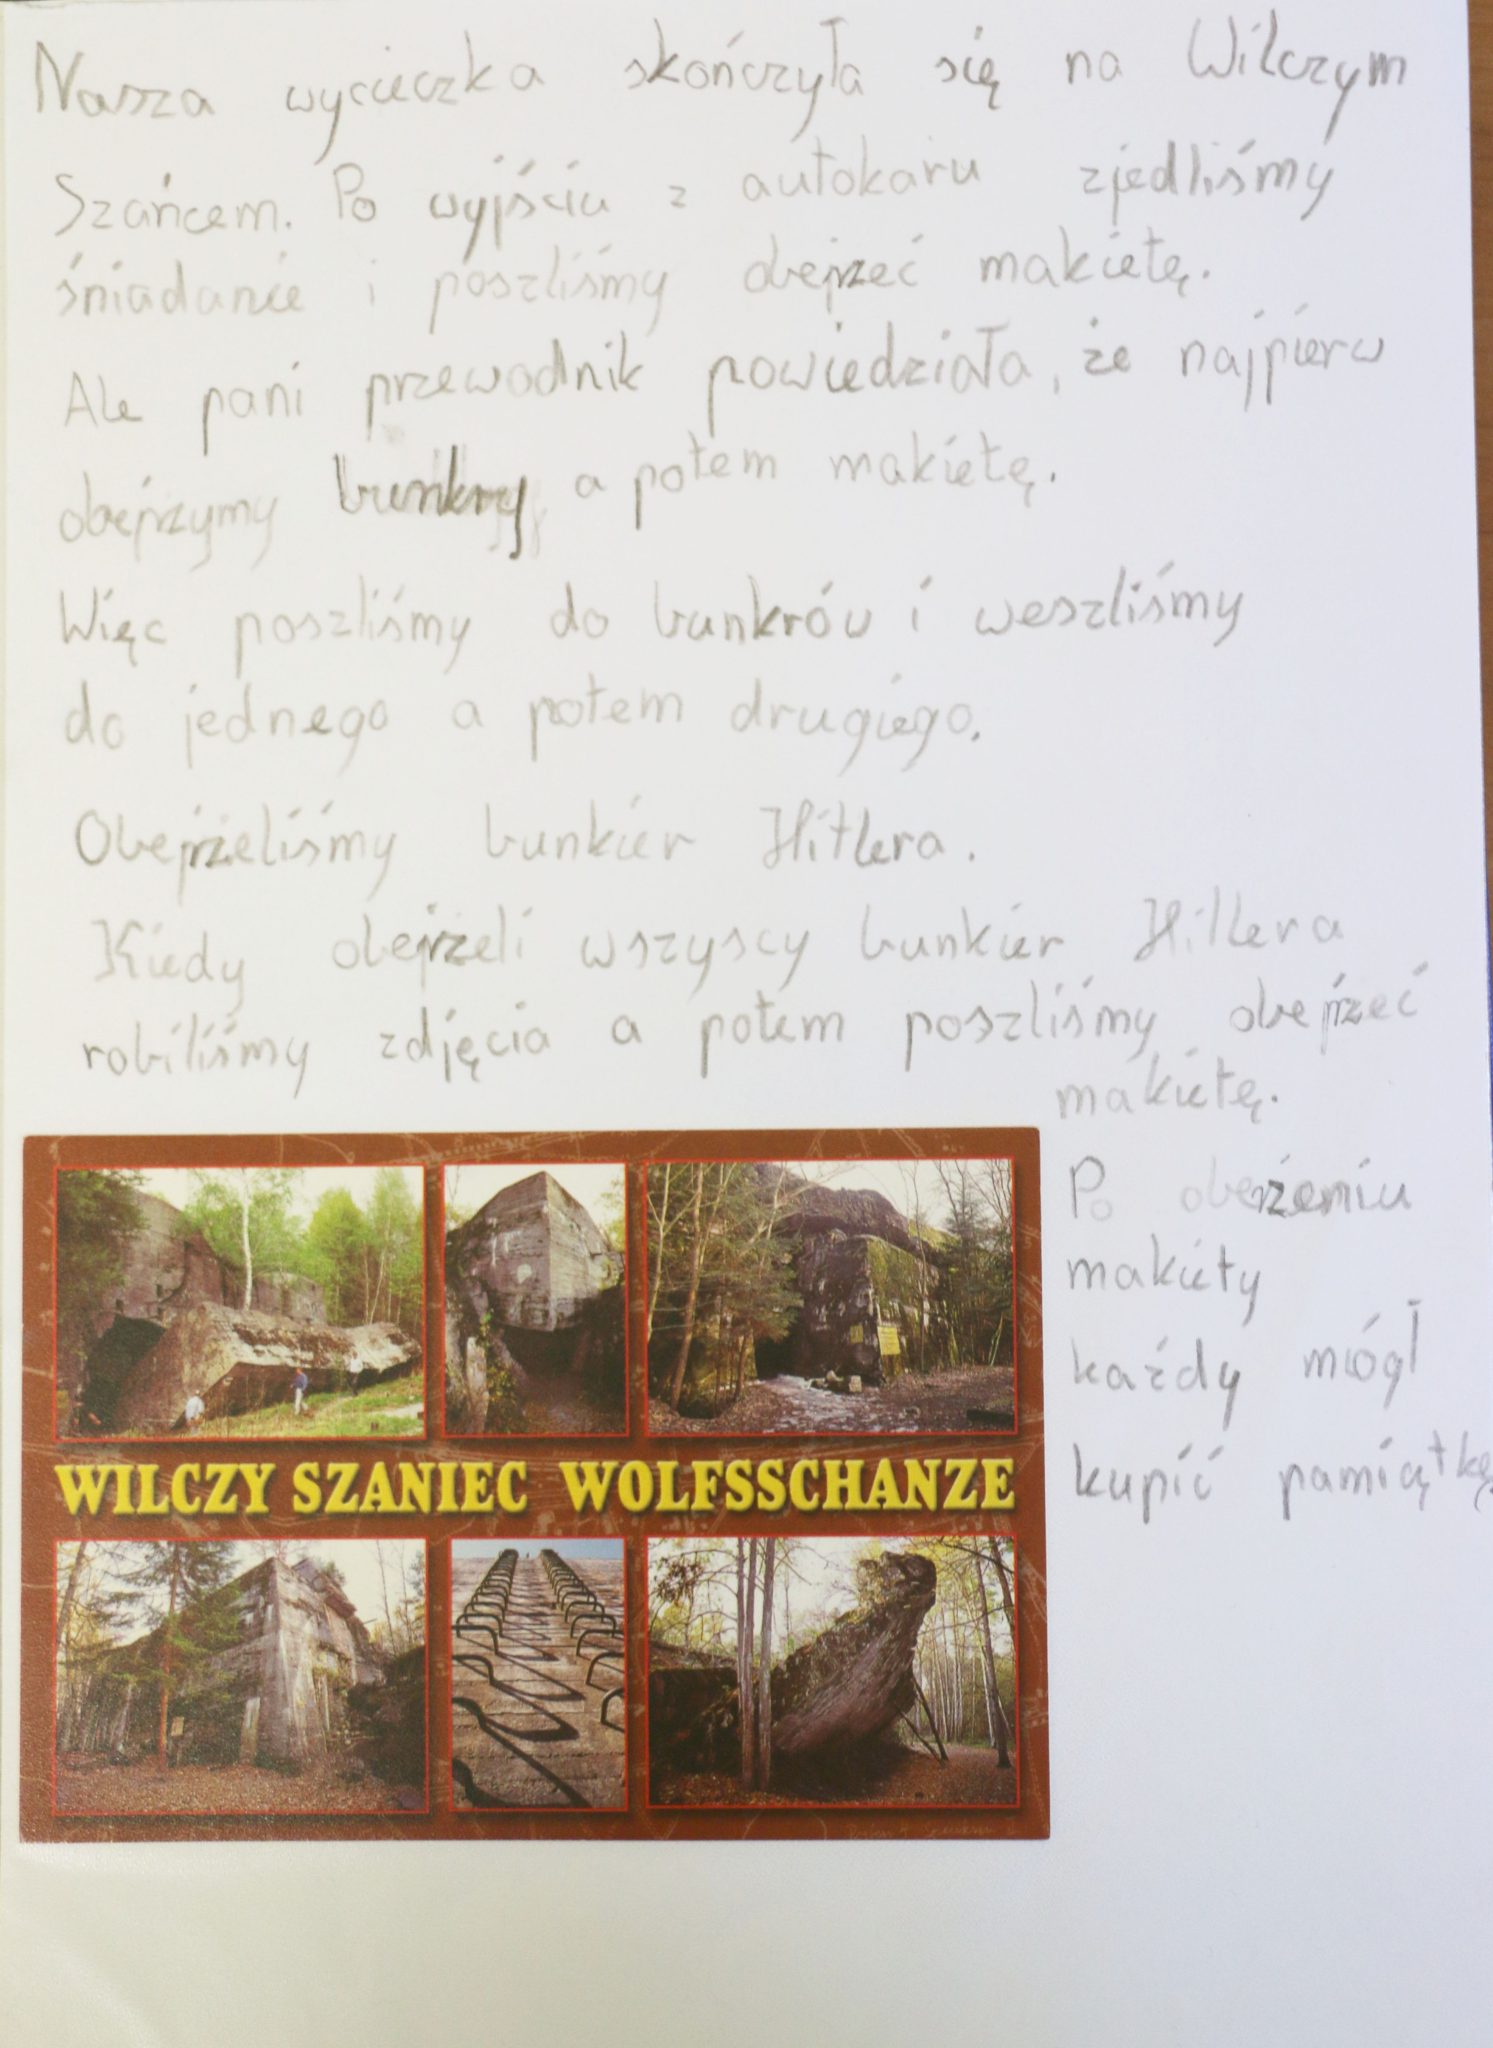 Nasza wycieczka skończyła się na Wilczym
Szańcem. Po wyjściu z autokaru zjedliśmy
śniadanie i poszliśmy obejrzeć makietę.
Ale pani przewodnik powiedziała, że najpierw
obejrzymy bunkry a potem makietę.
Więc poszliśmy do bunkrów i weszliśmy
do jednego a potem drugiego.
Obejrzeliśmy bunkier Hitlera.
Kiedy obejrzeli wszyscy bunkier Hitlera
robiliśmy zdjęcia a potem poszliśmy obejrzeć
makietę.
Po obejrzeniu
makiety
każdy mógł
kupić pamiątkę.
WILCZY SZANIEC WOLFSSCHANZE